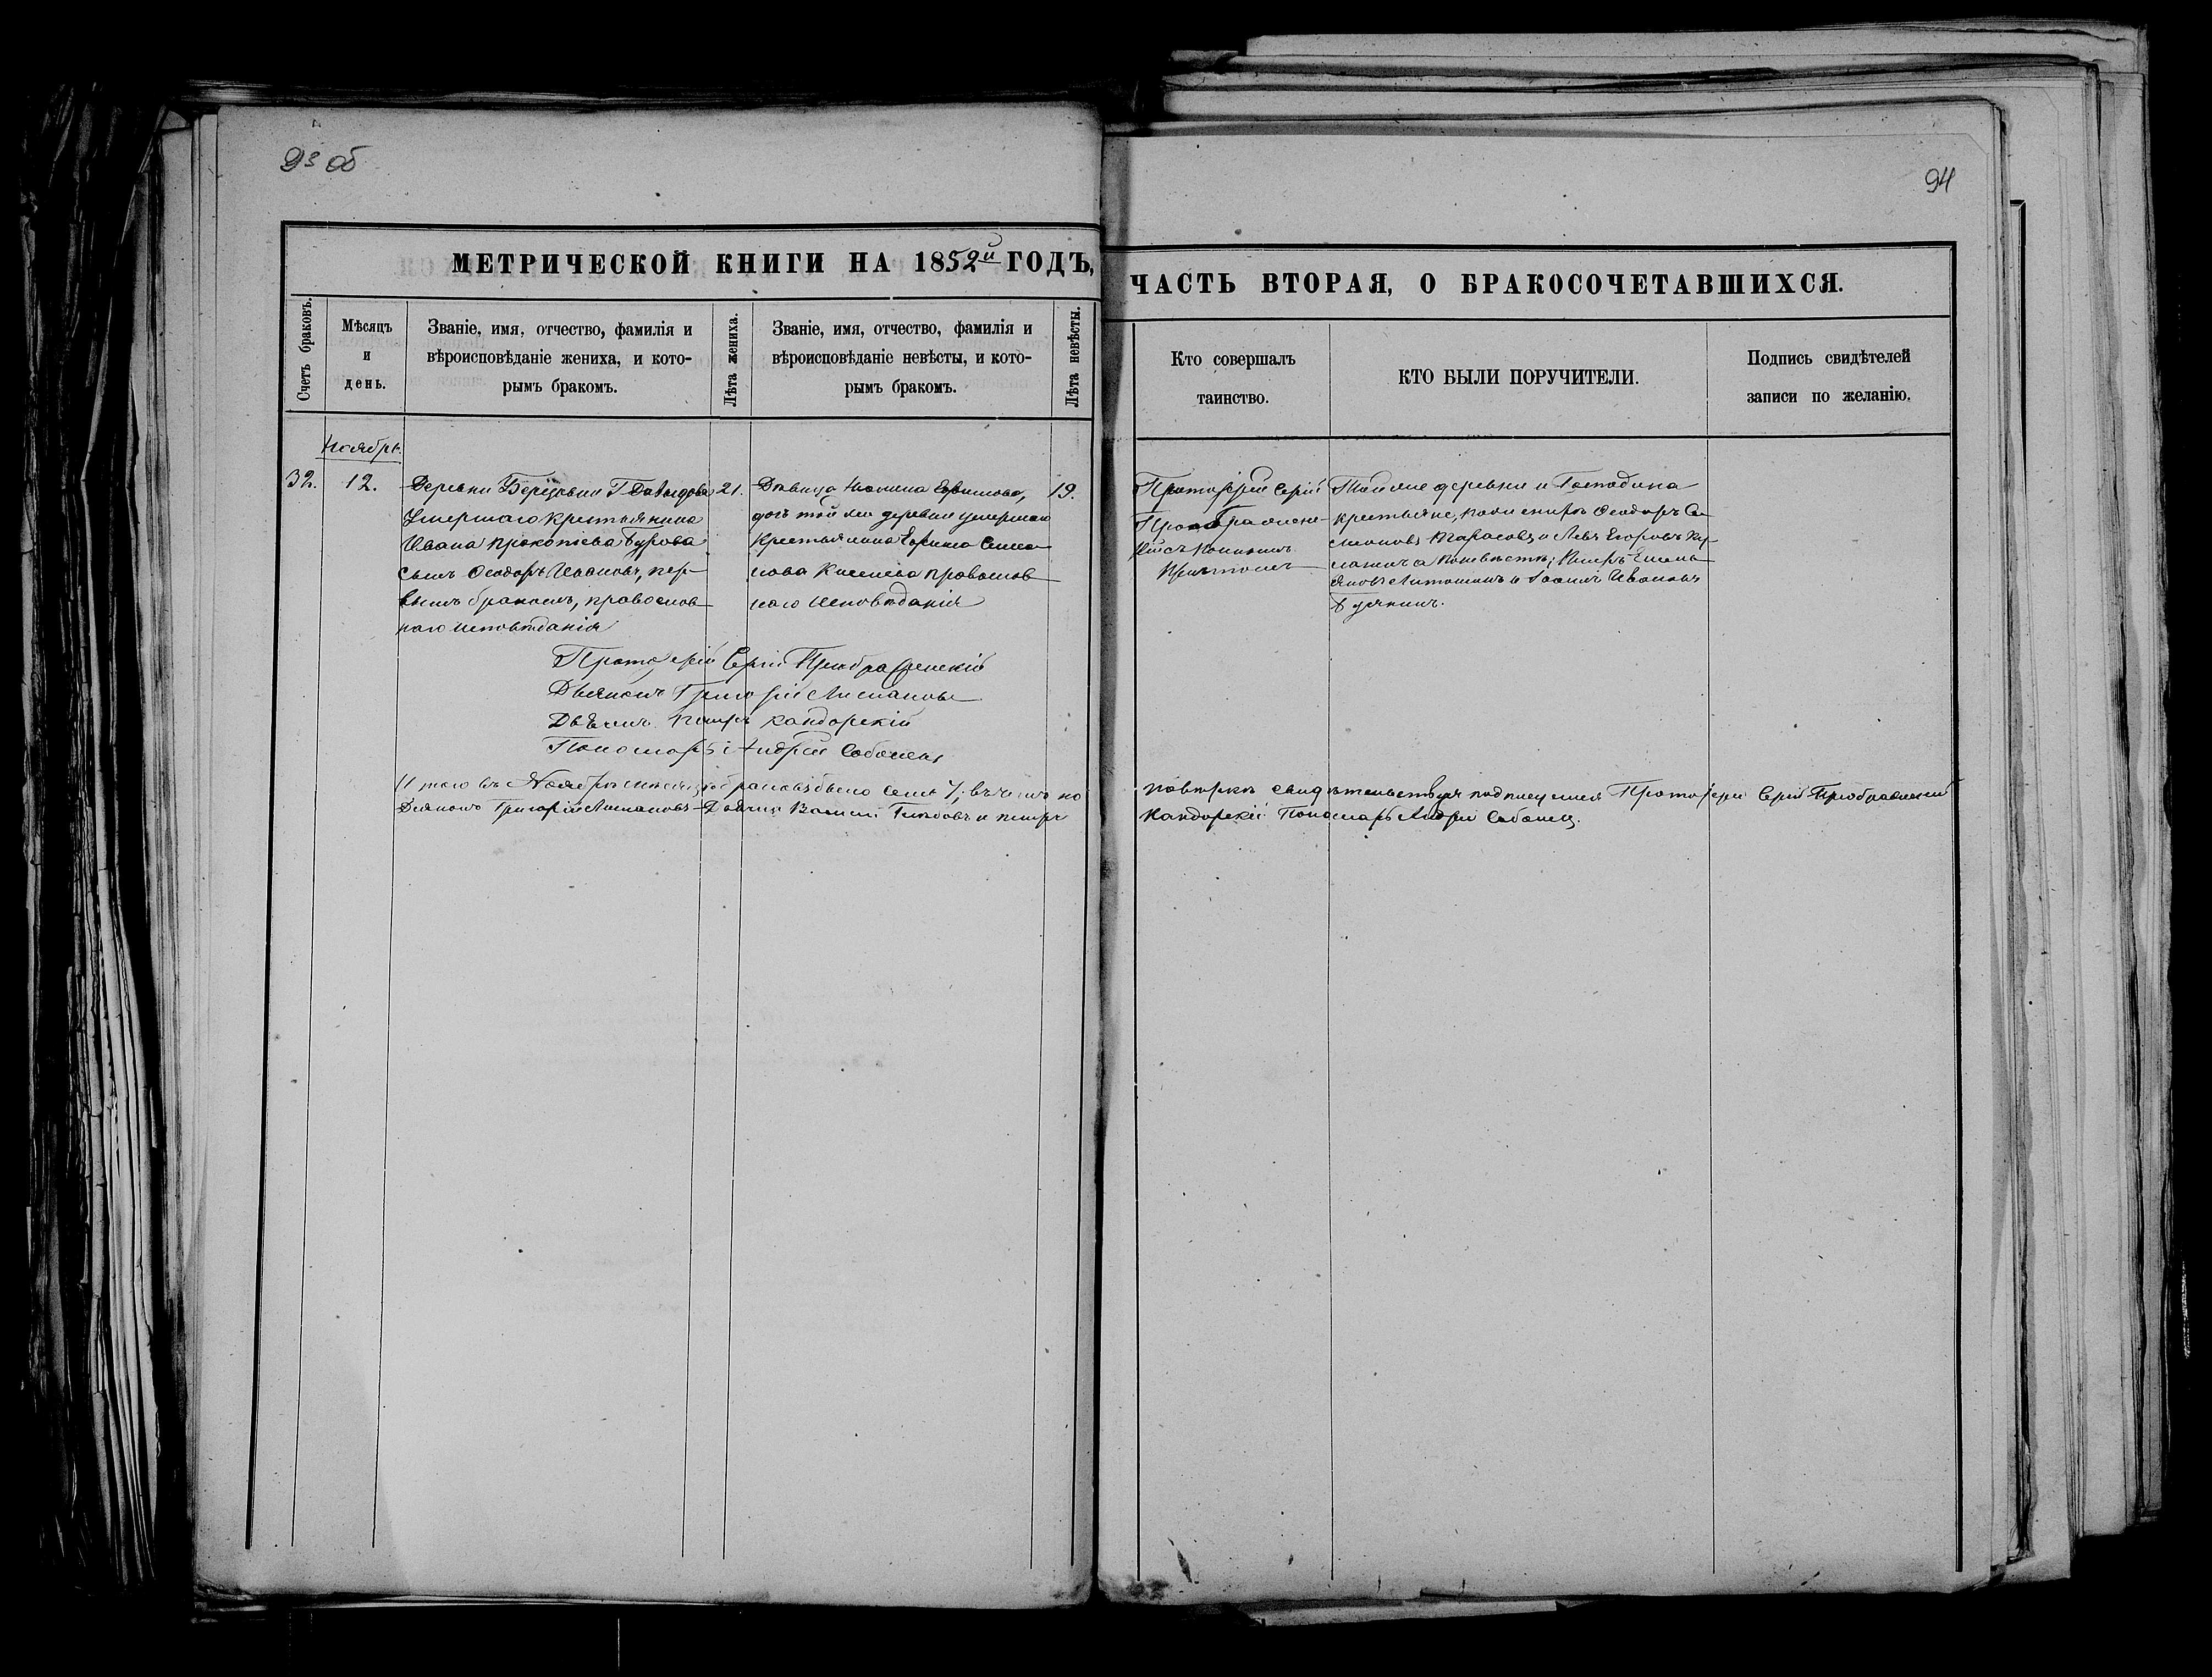 93 об
94
МЕТРИЧЕСКОЙ КНИГИ НА 1852й ГОДЪ,
ЧАСТЬ ВТОРАЯ, О БРАКОСОЧЕТАВШИХСЯ.
Счетъ браковъ.
Мѣсяцъ
и
день.
Званіе, имя, отчество, фамилія и
вѣроисповѣданіе жениха, и кото-
рымъ бракомъ.
Лѣта жениха.
Званіе, имя, отчество, фамилія и
вѣроисповѣданіе невѣсты, и кото-
рымъ бракомъ.
Лѣта невѣсты.
Кто совершалъ
таинство.
КТО БЫЛИ ПОРУЧИТЕЛИ.
Подпись свидѣтелей
записи по желанію.
Ноябрь.
32.
12.
Деревни Березовки Г Давыдова
Умершаго крестьянина
Ивана Прокопіева Бурова
сынъ Ѳеодоръ Ивановъ, пер-
вымъ бракомъ, православ
наго исповѣданія
21.
Дѣвица Ефимова,
дочь той же деревни умершаго
крестьянина Ефима Симо
нова православ
наго исповѣданія
19.
Протоіерей Сергій
Преображен-
скій съ
Причтомъ
Той же деревни и Господина
крестьяне, по женихѣ Ѳеодоръ Се
меновъ Тарасовъ и Левъ Егоровъ
по невѣстѣ; Петръ Емель
яновъ и Ивановъ
Протоіерей Сергій Преображенскій
Діаконъ Григорій
Дьячекъ Петръ Кандорскій
Пономарь Андрей
Итого въ Ноябрѣ мѣсяцѣ браковъ было семь 7; въ чемъ по
Діаконъ Григорій Дьячки Василій Глѣбовъ и Петръ
повѣркѣ свидѣтельствуя подписуемся Протоіерей Сергій Преображенскій
Кандорскій Пономарь Андрей